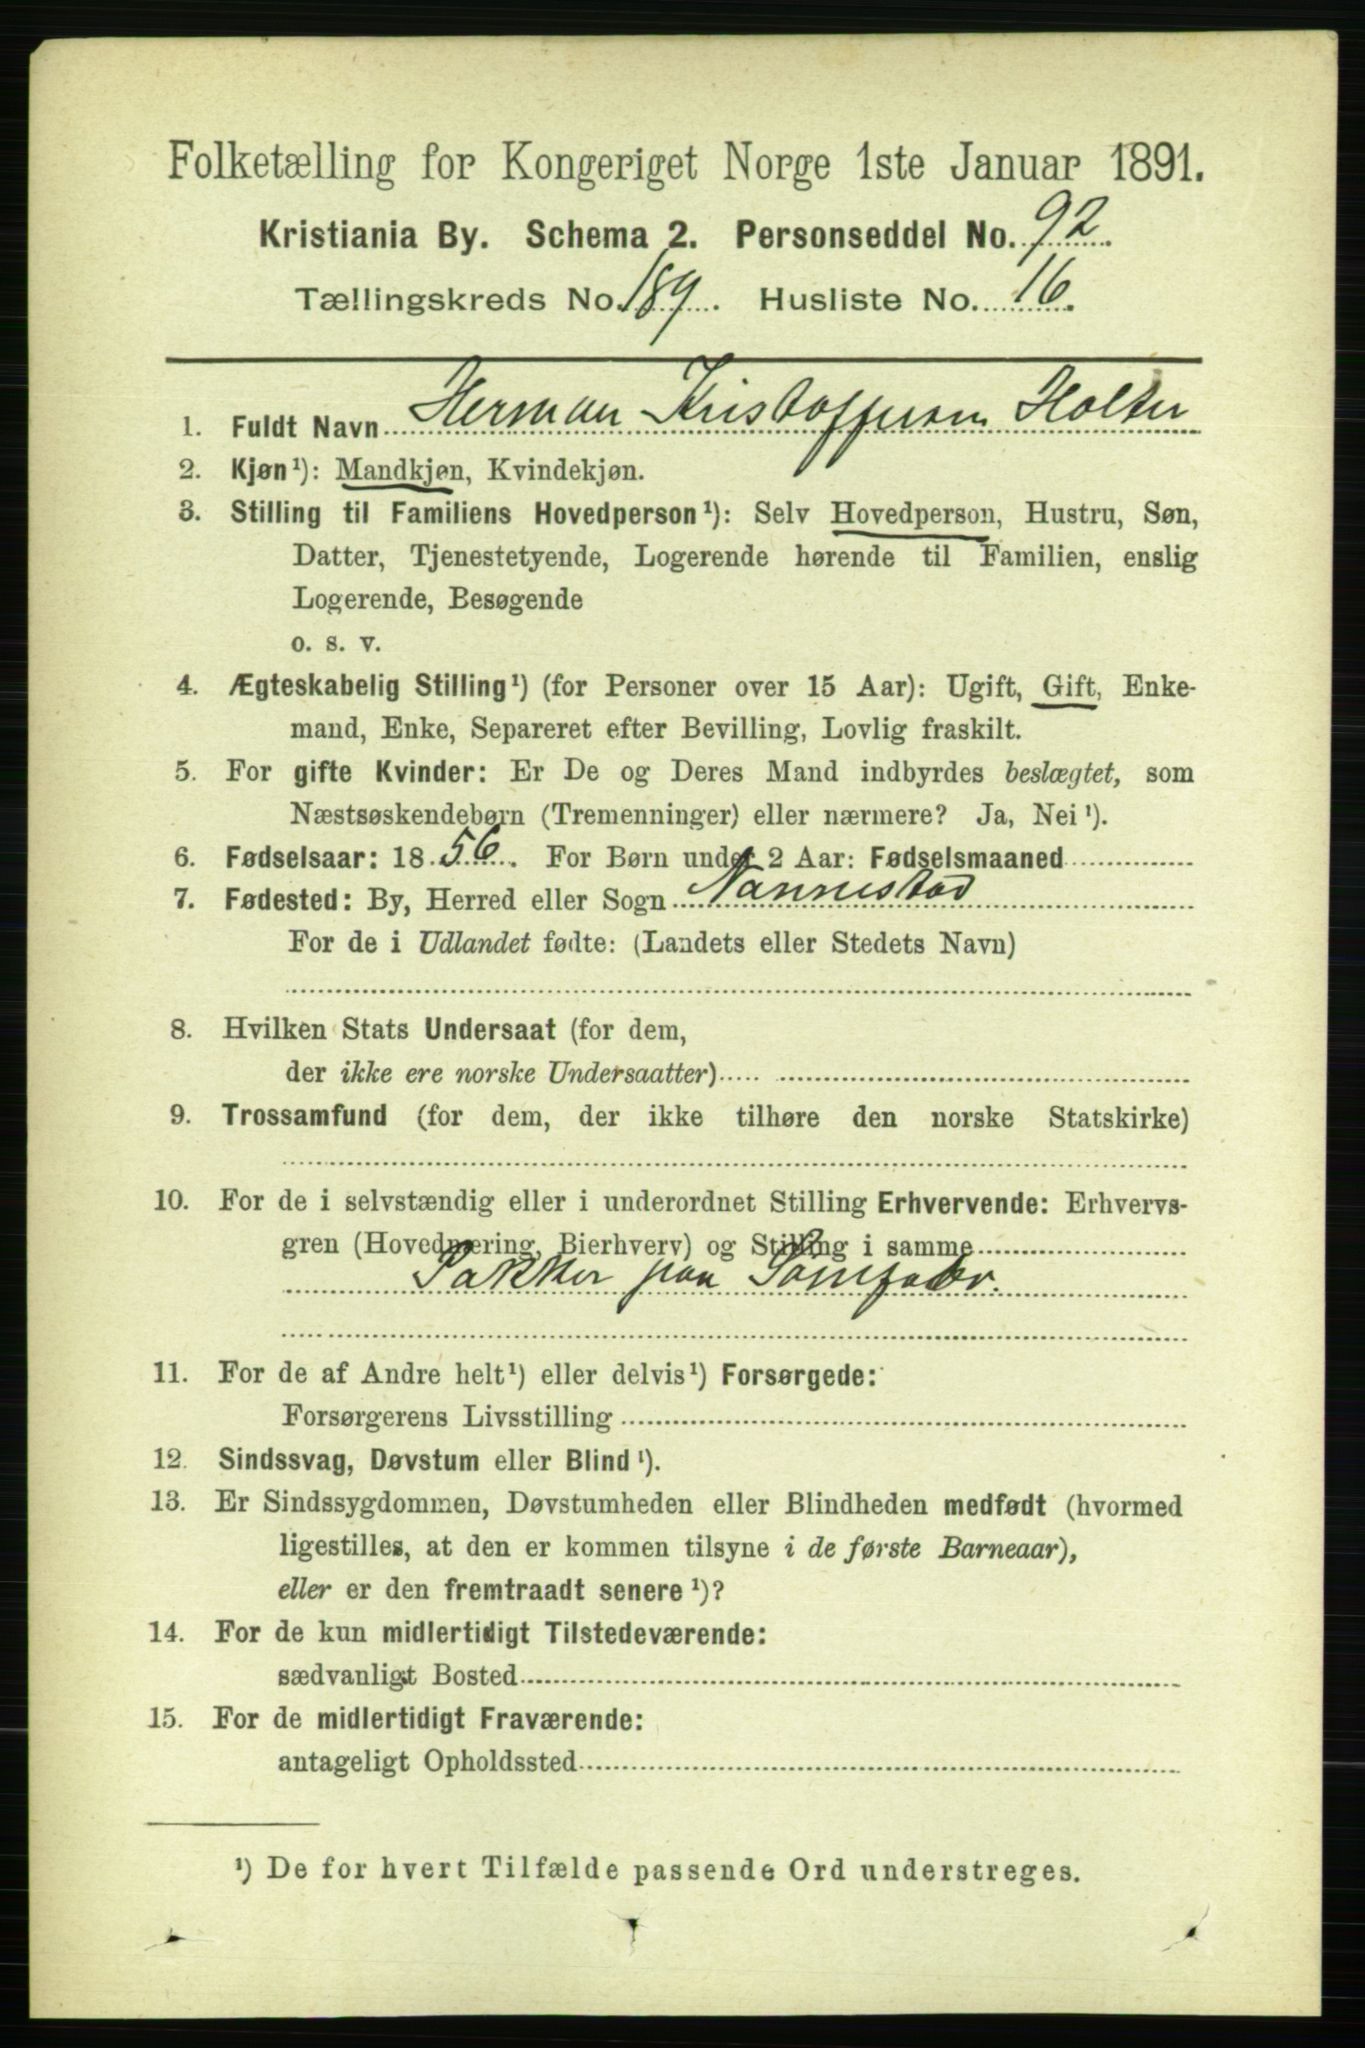 Folketælling for Kongeriget Norge 1ste Januar 1891.
Kristiania By. Schema 2. Personseddel No. 92
Tællingskreds No. 189. Husliste No. 16.
1. Fuldt Navn Herman Kristoffersen Holter
2. Kjøn¹): Mandkjøn, Kvindekjøn.
3. Stilling til Familiens Hovedperson¹): Selv Hovedperson, Hustru, Søn,
Datter, Tjenestetyende, Logerende hørende til Familien, enslig
Logerende, Besøgende
o. s. v.
4. Ægteskabelig Stilling¹) (for Personer over 15 Aar): Ugift, Gift, Enke-
mand, Enke, Separeret efter Bevilling, Lovlig fraskilt.
5. For gifte Kvinder: Er De og Deres Mand indbyrdes beslægtet, som
Næstsøskendebørn (Tremenninger) eller nærmere? Ja, Nei¹).
6. Fødselsaar: 1856. For Børn under 2 Aar: Fødselsmaaned
7. Fødested: By, Herred eller Sogn Nannestad
For de i Udlandet fødte: (Landets eller Stedets Navn)
8. Hvilken Stats Undersaat (for dem,
der ikke ere norske Undersaatter)
9. Trossamfund (for dem, der ikke tilhøre den norske Statskirke)
10. For de i selvstændig eller i underordnet Stilling Erhvervende: Erhvervs-
gren (Hovednæring, Bierhverv) og Stilling i samme
Pakker paa
11. For de af Andre helt¹) eller delvis¹) Forsørgede:
Forsørgerens Livsstilling
12. Sindssvag, Døvstum eller Blind¹).
13. Er Sindssygdommen, Døvstumheden eller Blindheden medfødt (hvormed
ligestilles, at den er kommen tilsyne i de første Barneaar),
eller er den fremtraadt senere¹)?
14. For de kun midlertidigt Tilstedeværende:
sædvanligt Bosted
15. For de midlertidigt Fraværende:
antageligt Opholdssted
¹) De for hvert Tilfælde passende Ord understreges.